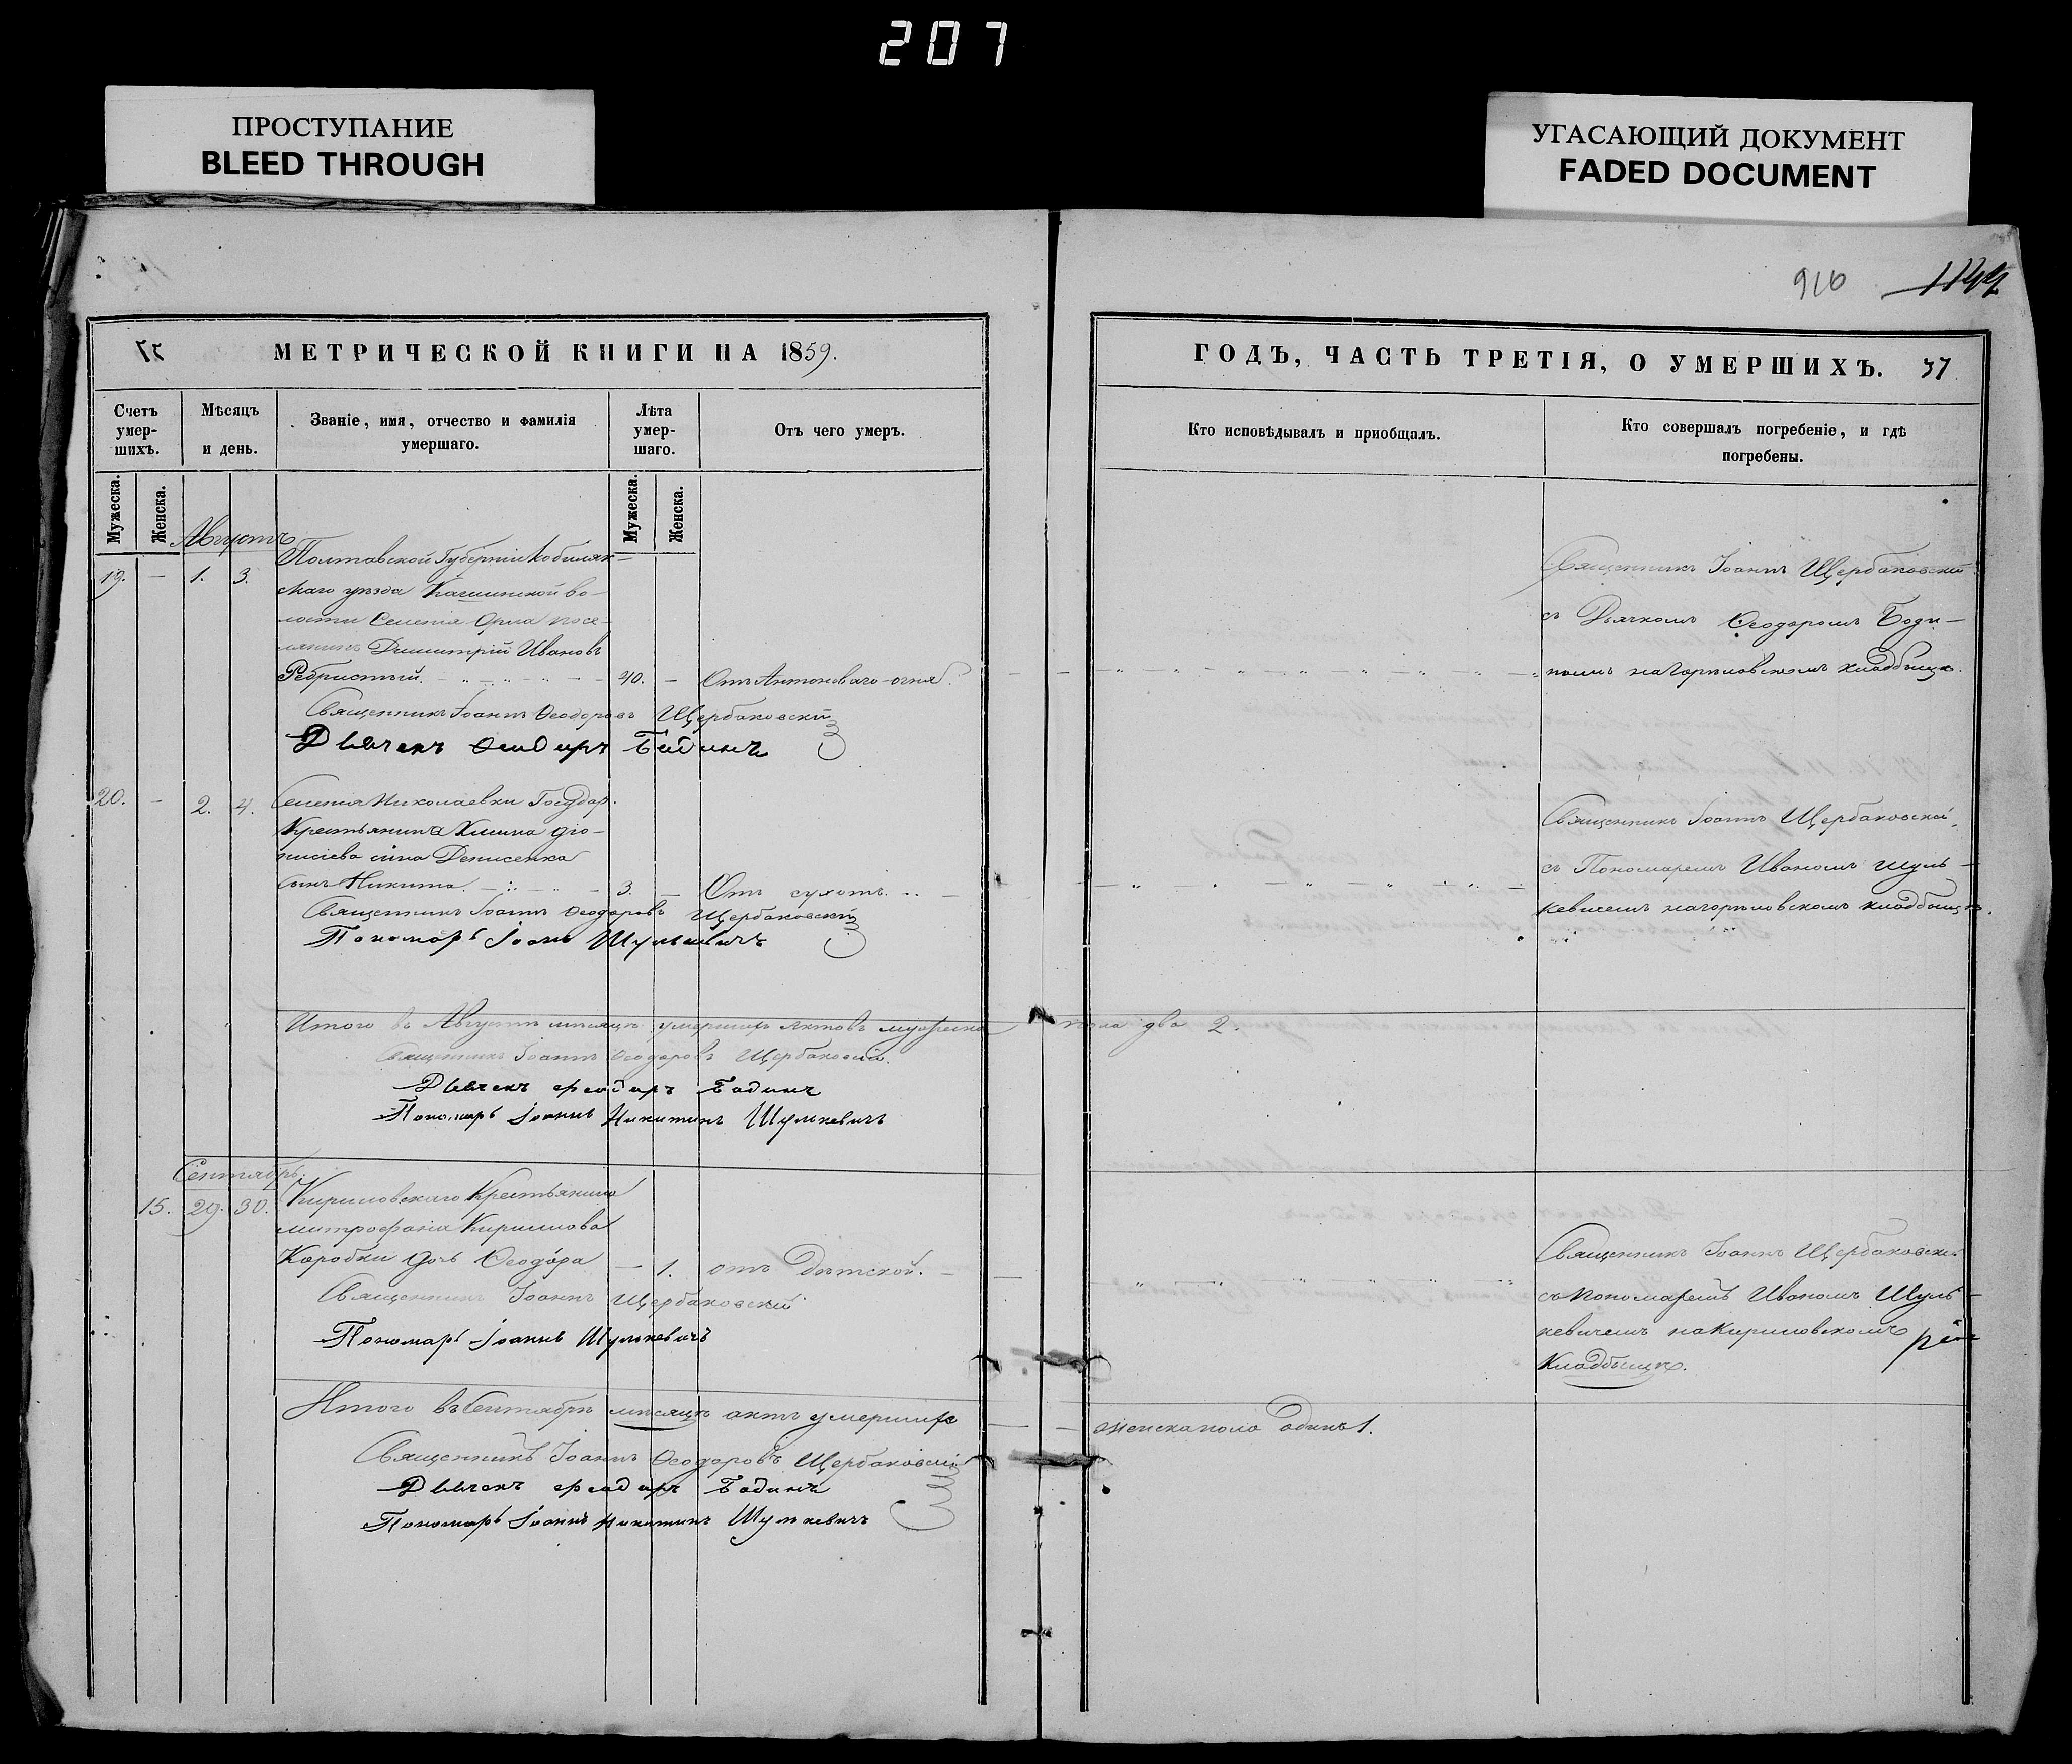 207
ПРОСТУПАНИЕ
BLEED THROUGH
УГАСАЮЩИЙ ДОКУМЕНТ
FADED DOCUMENT
МЕТРИЧЕСКОЙ КНИГИ НА 1859.
Счетъ умер-шихъ.
Мѣсяцъ и день.
Званіе, имя, отчество и фамилія умершаго.
Лѣта умер-шаго.
Отъ чего умеръ.
Мужеска.
Женска.
Мужеска.
Женска.
Августъ
Полтавской Губерніи Кобиляк-
19. — 1. 3.
скаго уѣзда во-
лости Селенія посе-
лянинъ Димитрій Ивановъ
Ребристый. 40. — Отъ Антоноваго огня.
Священникъ Іоаннъ Ѳеодоровъ Щербаковскій
Дьячекъ Ѳеодоръ Бодинъ
20. — 2. 4. Селенія Николаевки Государ.
Крестьянина Діо-
нисіева сина Денисенка
сынъ Никита. 3. — Отъ сухотъ.
Священникъ Іоаннъ Ѳеодоровъ Щербаковскій
Пономарь Іоанъ Шулькевичъ
Итого въ Августѣ мѣсяцѣ умершихъ актовъ мужеска
Священникъ Іоаннъ Ѳеодоровъ Щербаковскій
Дьячекъ Феодоръ Бодинъ
Пономарь Іоаннъ Никитинъ Шулькевичъ
Сентябрь.
15. 29. 30. Кириловскаго Крестьянина
митрофанія Кирилова
Коробки дочь Ѳеодора — 1. отъ Дѣтской.
Священникъ Іоаннъ Щербаковскій
Пономарь Іоаннъ Шулькевичъ
Итого въ Сентябрѣ мѣсяцѣ актъ умершихъ
Священникъ Іоаннъ Ѳеодоровъ Щербаковскій
Дьячекъ Феодоръ Бодинъ
Пономарь Іоаннъ Никитинъ Шулькевичъ
916
ГОДЪ, ЧАСТЬ ТРЕТІЯ, О УМЕРШИХЪ. 37
Кто исповѣдывалъ и пріобщалъ.
Кто совершалъ погребеніе, и гдѣ погребены.
Священникъ Іоаннъ Щербаковскій
съ Дьячкомъ Ѳеодоромъ Боди-
номъ на кладбищѣ.
Священникъ Іоаннъ Щербаковскій
съ Пономаремъ Иваномъ Шуль-
кевичемъ на кладбищѣ.
пола два 2.
Священникъ Іоаннъ Щербаковскій
съ пономаремъ Иваномъ Шуль-
кевичемъ на Кириловскомъ
Кладбищѣ.
женска пола одинъ 1.